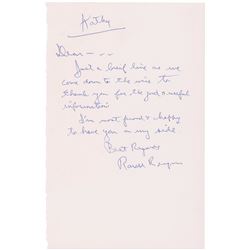 Kathy
Dear — ~ ~
Just a brief line as we
come down to the wire to
thank you for the good & useful
information
I'm most proud & happy
to have you on my side
Best Regards
Ronald Reagan